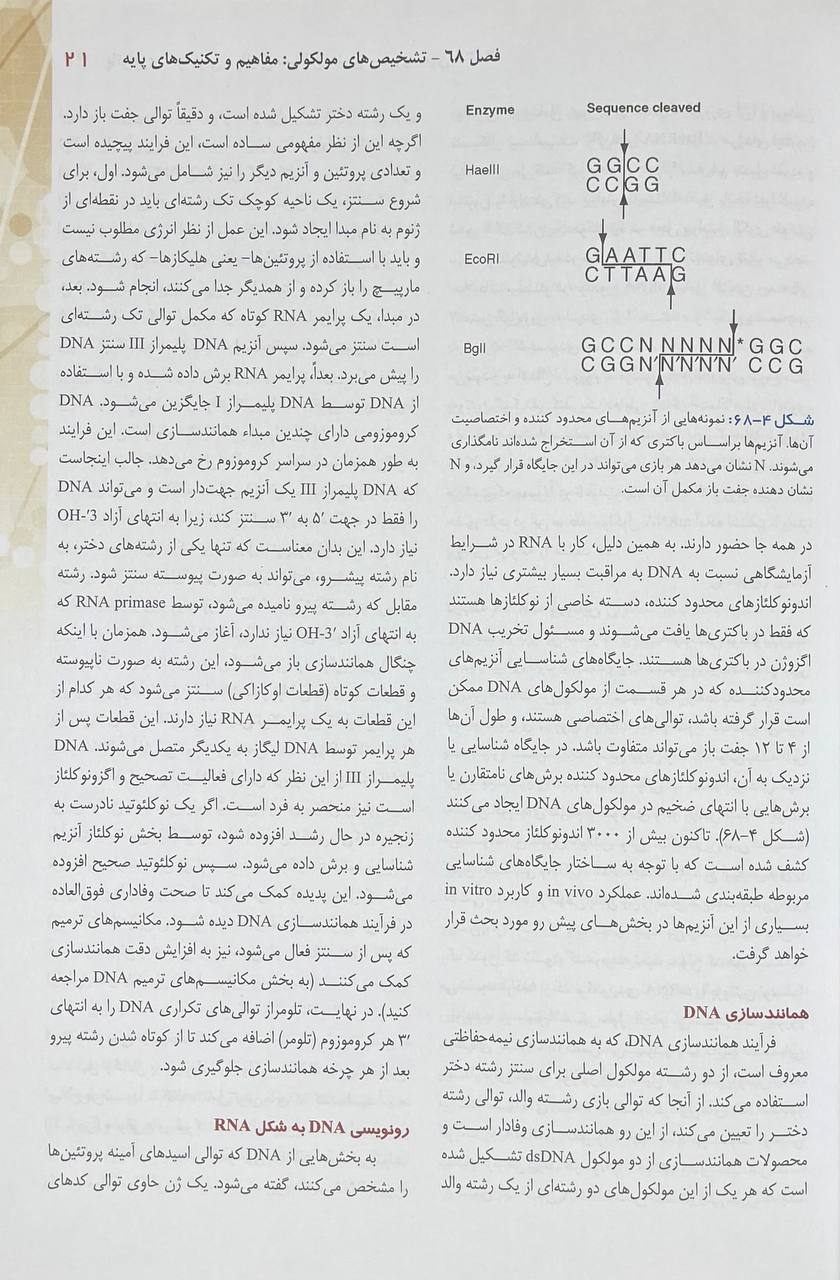 فصل ۶۸ - تشخیص‌های مولکولی: مفاهیم و تکنیک‌های پایه ۲۱
Enzyme Sequence cleaved
HaeIII
G G C C
C C G G
EcoRI
G A A T T C
C T T A A G
BglI
G C C N N N N N * G G C
C G G N′ N′ N′ N′ N′ C C G
شکل ۴-۶۸: نمونه‌هایی از آنزیم‌های محدود کننده و اختصاصیت
آن‌ها. آنزیم‌ها براساس باکتری که از آن استخراج شده‌اند نامگذاری
می‌شوند. N نشان می‌دهد هر بازی می‌تواند در این جایگاه قرار گیرد، و N
نشان دهنده جفت باز مکمل آن است.
در همه جا حضور دارند. به همین دلیل، کار با RNA در شرایط
آزمایشگاهی نسبت به DNA به مراقبت بسیار بیشتری نیاز دارد.
اندونوکلئازهای محدود کننده، دسته خاصی از نوکلئازها هستند
که فقط در باکتری‌ها یافت می‌شوند و مسئول تخریب DNA
اگزوژن در باکتری‌ها هستند. جایگاه‌های شناسایی آنزیم‌های
محدودکننده که در هر قسمت از مولکول‌های DNA ممکن
است قرار گرفته باشد، توالی‌های اختصاصی هستند، و طول آن‌ها
از ۴ تا ۱۲ جفت باز می‌تواند متفاوت باشد. در جایگاه شناسایی یا
نزدیک به آن، اندونوکلئازهای محدود کننده برش‌های نامتقارن یا
برش‌هایی با انتهای ضخیم در مولکول‌های DNA ایجاد می‌کنند
(شکل ۴-۶۸). تاکنون بیش از ۳۰۰۰ اندونوکلئاز محدود کننده
کشف شده است که با توجه به ساختار جایگاه‌های شناسایی
مربوطه طبقه‌بندی شده‌اند. عملکرد in vivo و کاربرد in vitro
بسیاری از این آنزیم‌ها در بخش‌های پیش رو مورد بحث قرار
خواهد گرفت.
همانندسازی DNA
فرآیند همانندسازی DNA، که به همانندسازی نیمه‌حفاظتی
معروف است، از دو رشته مولکول اصلی برای سنتز رشته دختر
استفاده می‌کند. از آنجا که توالی بازی رشته والد، توالی رشته
دختر را تعیین می‌کند، از این رو همانندسازی وفادار است و
محصولات همانندسازی از دو مولکول dsDNA تشکیل شده
است که هر یک از این مولکول‌های دو رشته‌ای از یک رشته والد
و یک رشته دختر تشکیل شده است، و دقیقاً توالی جفت باز دارد.
اگرچه این از نظر مفهومی ساده است، این فرایند پیچیده است
و تعدادی پروتئین و آنزیم دیگر را نیز شامل می‌شود. اول، برای
شروع سنتز، یک ناحیه کوچک تک رشته‌ای باید در نقطه‌ای از
ژنوم به نام مبدا ایجاد شود. این عمل از نظر انرژی مطلوب نیست
و باید با استفاده از پروتئین‌ها- یعنی هلیکازها- که رشته‌های
مارپیچ را باز کرده و از همدیگر جدا می‌کنند، انجام شود. بعد،
در مبدا، یک پرایمر RNA کوتاه که مکمل توالی تک رشته‌ای
است سنتز می‌شود. سپس آنزیم DNA پلیمراز III سنتز DNA
را پیش می‌برد. بعداً، پرایمر RNA برش داده شده و با استفاده
از DNA توسط DNA پلیمراز I جایگزین می‌شود. DNA
کروموزومی دارای چندین مبداء همانندسازی است. این فرایند
به طور همزمان در سراسر کروموزوم رخ می‌دهد. جالب اینجاست
که DNA پلیمراز III یک آنزیم جهت‌دار است و می‌تواند DNA
را فقط در جهت ۵′ به ۳′ سنتز کند، زیرا به انتهای آزاد OH-′3
نیاز دارد. این بدان معناست که تنها یکی از رشته‌های دختر، به
نام رشته پیشرو، می‌تواند به صورت پیوسته سنتز شود. رشته
مقابل که رشته پیرو نامیده می‌شود، توسط RNA primase که
به انتهای آزاد OH-3′ نیاز ندارد، آغاز می‌شود. همزمان با اینکه
چنگال همانندسازی باز می‌شود، این رشته به صورت ناپیوسته
و قطعات کوتاه (قطعات اوکازاکی) سنتز می‌شود که هر کدام از
این قطعات به یک پرایمر RNA نیاز دارند. این قطعات پس از
هر پرایمر توسط DNA لیگاز به یکدیگر متصل می‌شوند. DNA
پلیمراز III از این نظر که دارای فعالیت تصحیح و اگزونوکلئاز
است نیز منحصر به فرد است. اگر یک نوکلئوتید نادرست به
زنجیره در حال رشد افزوده شود، توسط بخش نوکلئاز آنزیم
شناسایی و برش داده می‌شود. سپس نوکلئوتید صحیح افزوده
می‌شود. این پدیده کمک می‌کند تا صحت وفاداری فوق‌العاده
در فرآیند همانندسازی DNA دیده شود. مکانیسم‌های ترمیم
که پس از سنتز فعال می‌شود، نیز به افزایش دقت همانندسازی
کمک می‌کنند (به بخش مکانیسم‌های ترمیم DNA مراجعه
کنید). در نهایت، تلومراز توالی‌های تکراری DNA را به انتهای
۳′ هر کروموزوم (تلومر) اضافه می‌کند تا از کوتاه شدن رشته پیرو
بعد از هر چرخه همانندسازی جلوگیری شود.
رونویسی DNA به شکل RNA
به بخش‌هایی از DNA که توالی اسیدهای آمینه پروتئین‌ها
را مشخص می‌کنند، گفته می‌شود. یک ژن حاوی توالی کدهای